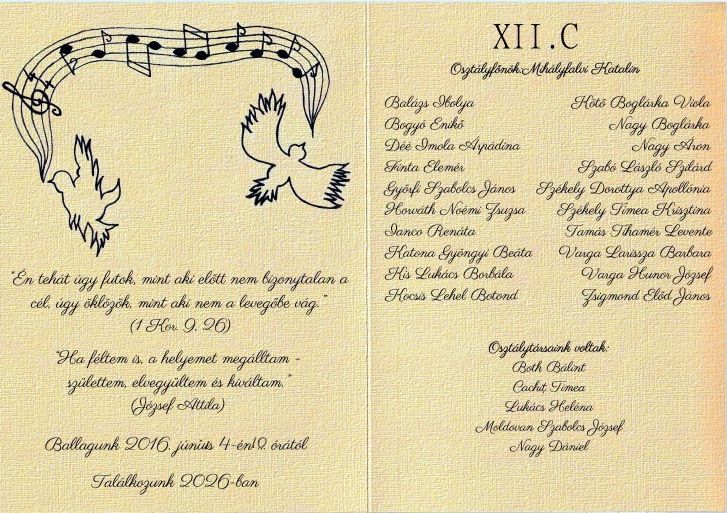 "Én tehát úgy futok, mint aki előtt nem bizonytalan a
cél, úgy öklözök, mint aki nem a levegőbe vág."
(1 Kor. 9, 26)
"Ha féltem is, a helyemet megálltam -
születtem, elvegyültem és kiváltam."
(József Attila)
Ballagunk 2016. június 4-én 12 órától
Találkozunk 2026-ban
XII.C
Osztályfőnök:Mihályfalvi Katalin
Balázs Ibolya
Bogyó Enikő
Déé Imola Árpádina
Finta Elemér
Győrfi Szabolcs János
Horváth Noémi Zsuzsa
Ianco Renáta
Katona Gyöngyi Beáta
Kis Lukács Borbála
Kocsis Lehel Botond
Kötő Boglárka Viola
Nagy Boglárka
Nagy Áron
Szabó László Szilárd
Székely Dorottya Apollónia
Székely Tímea Krisztina
Tamás Tihamér Levente
Varga Larissza Barbara
Varga Hunor József
Zsigmond Előd János
Osztálytársaink voltak:
Both Bálint
Cachiț Tímea
Lukács Heléna
Moldovan Szabolcs József
Nagy Dániel